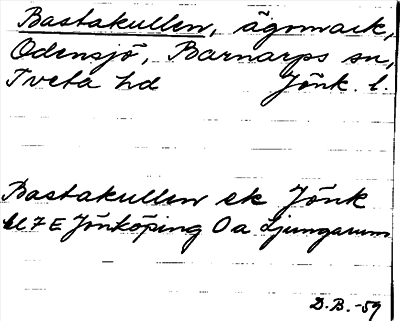 Bastakullen, ägomark,
Odensjö, Barnarps sn,
Tveta hd Jönk. l.
Bastakullen ek Jönk
bl 7 E Jönköping 0 a Ljungarum
D.B. -59